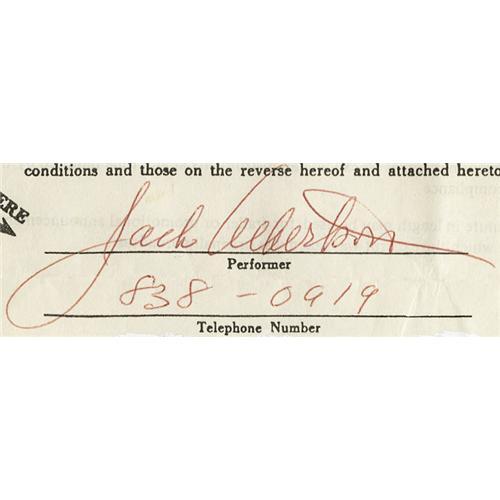 conditions and those on the reverse hereof and attached hereto
ERE
Jack Albertson
Performer
838-0919
Telephone Number